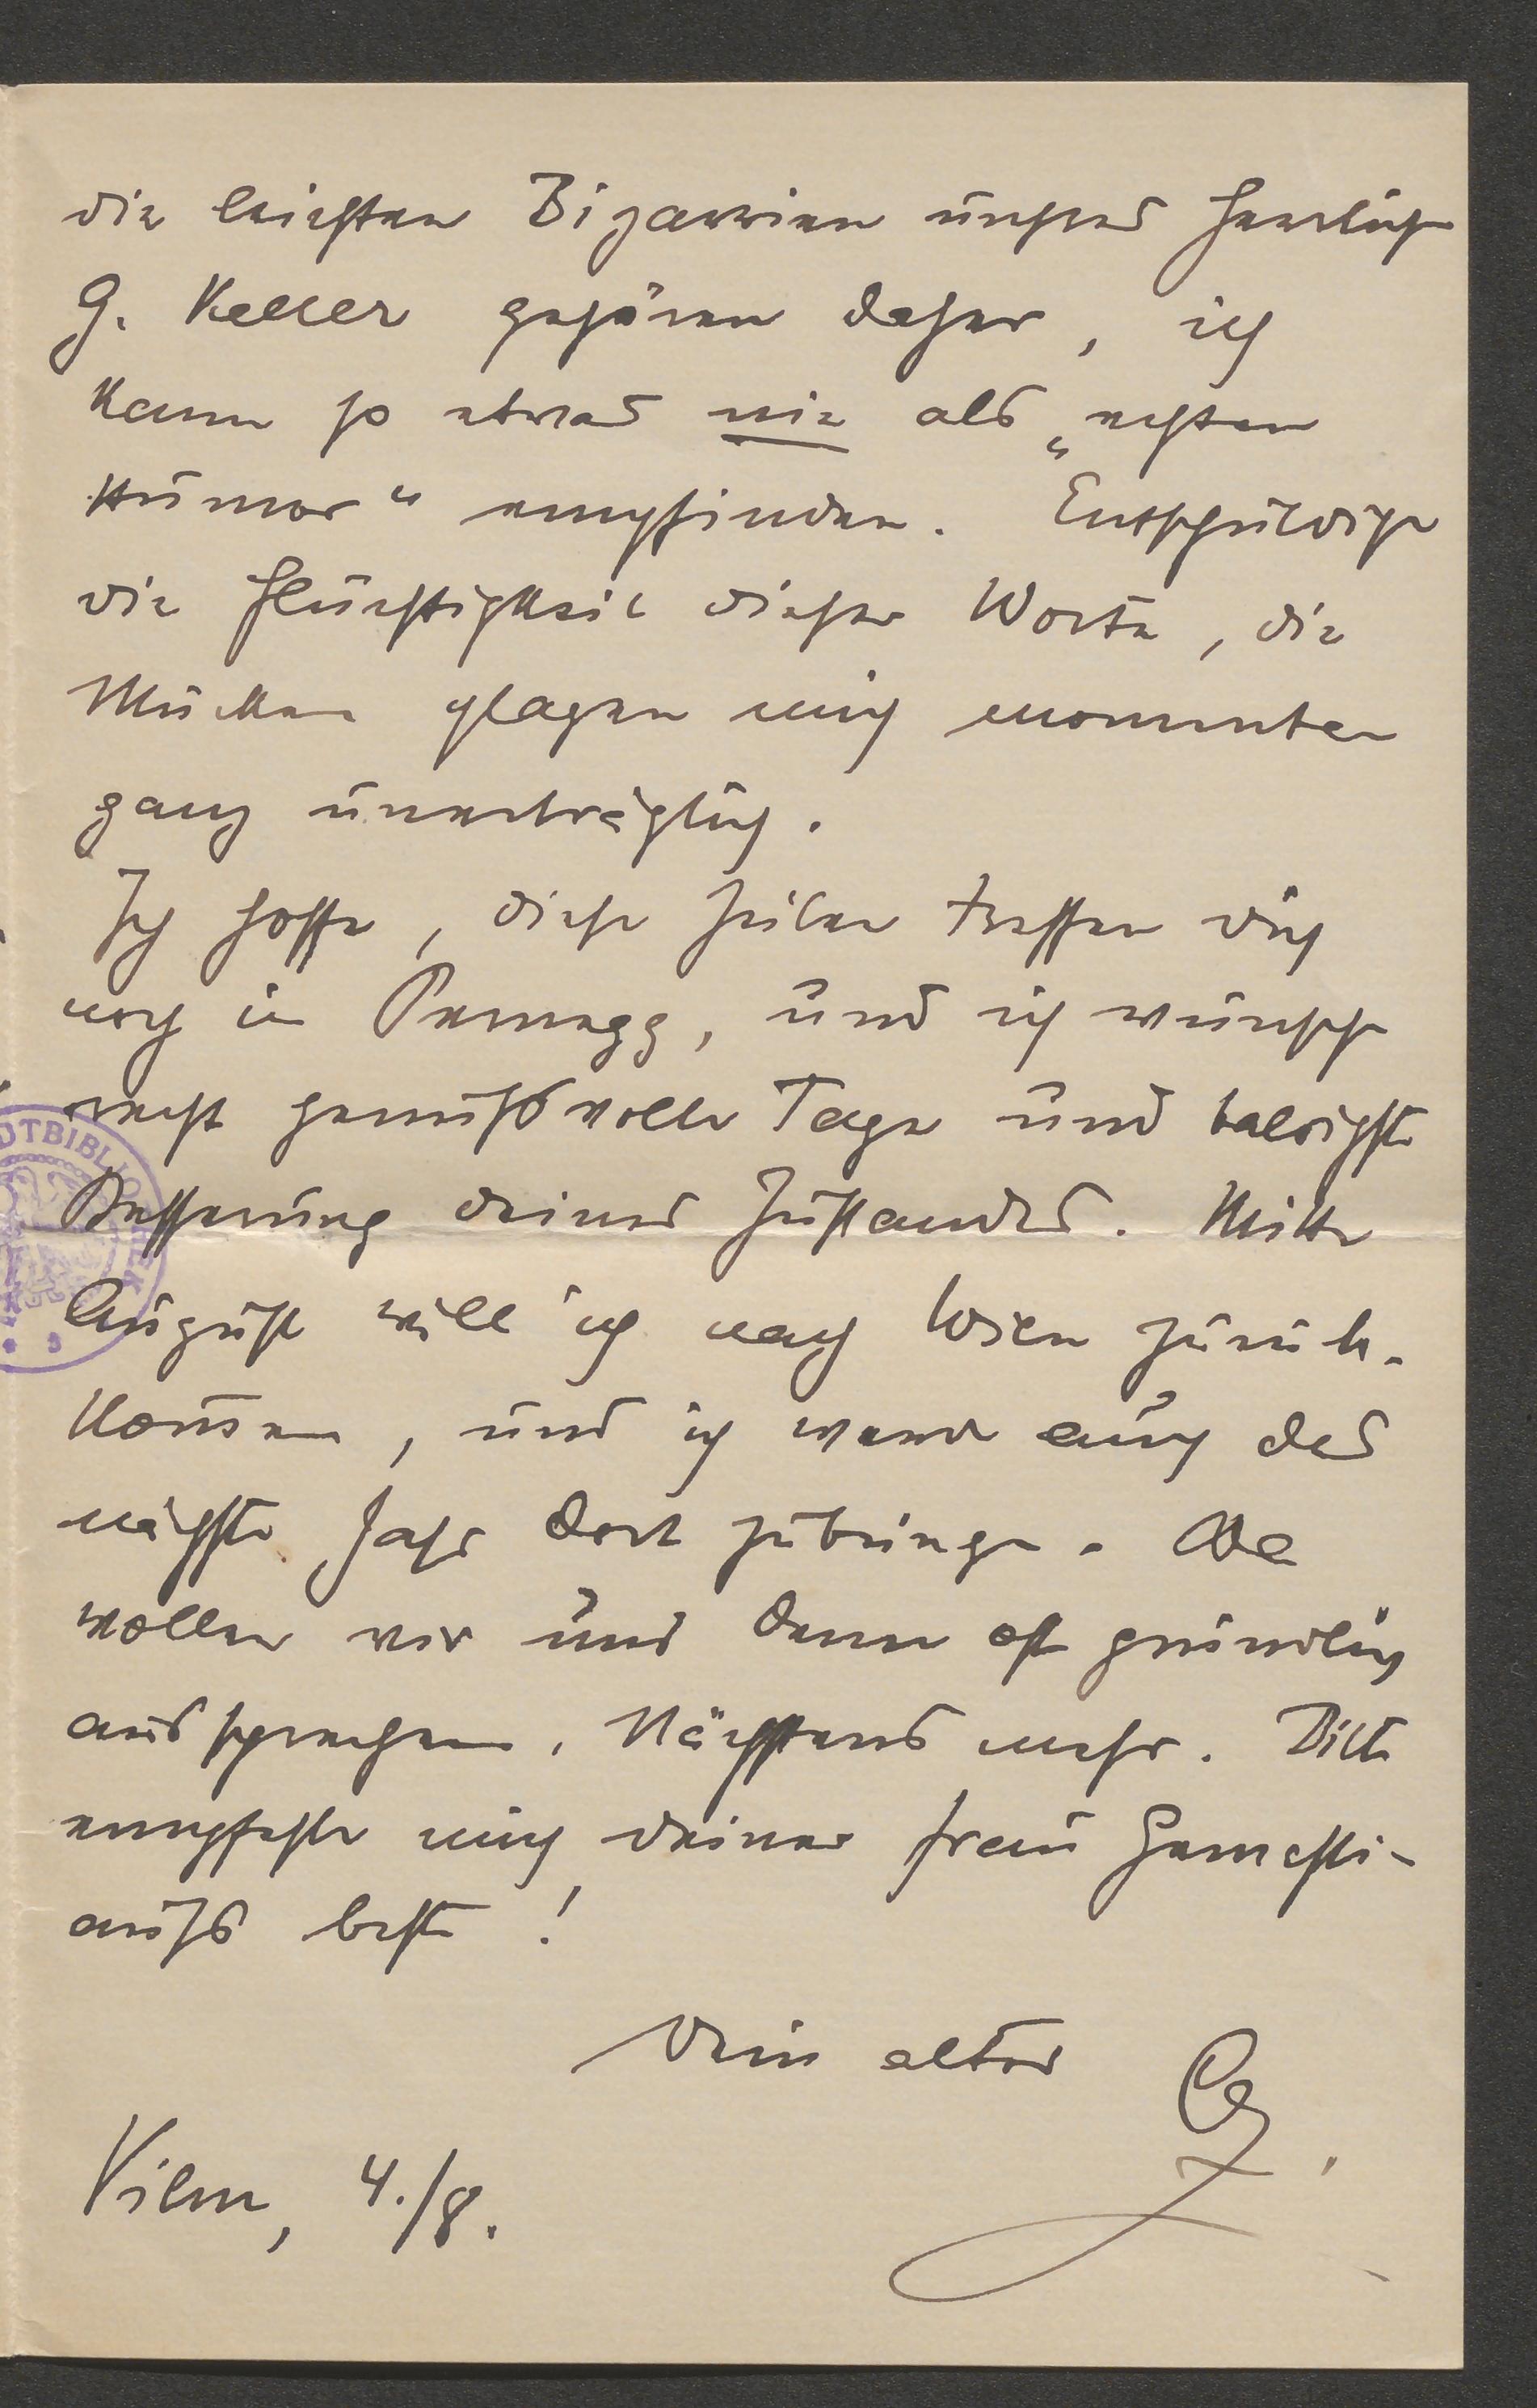 die leichten Bizarrien unsres herrlichen
G. Keller gehören daher, ich
kann so etwas nie als „echten
Humor“ empfinden. Entschuldige
die Flüchtigkeit dieser Worte, die
Mücken plagen mich momentan
ganz unerträglich.
Ich hoffe, diese Zeilen treffen dich
noch in Pernegg, und ich wünsche
recht genußvolle Tage und baldigste
Besserung deines Zustandes. Mitte
August will ich nach Wien zurück-
kom̄en, und ich werde auch das
nächste Jahr dort zubringen. Da
wollen wir uns dann oft gründlich
aussprechen. Nächstens mehr. Bitte
empfehle mich deiner Frau
aufs beste!
Dein alter
Vilm, 4./8.
DTBIBLIOTHEK